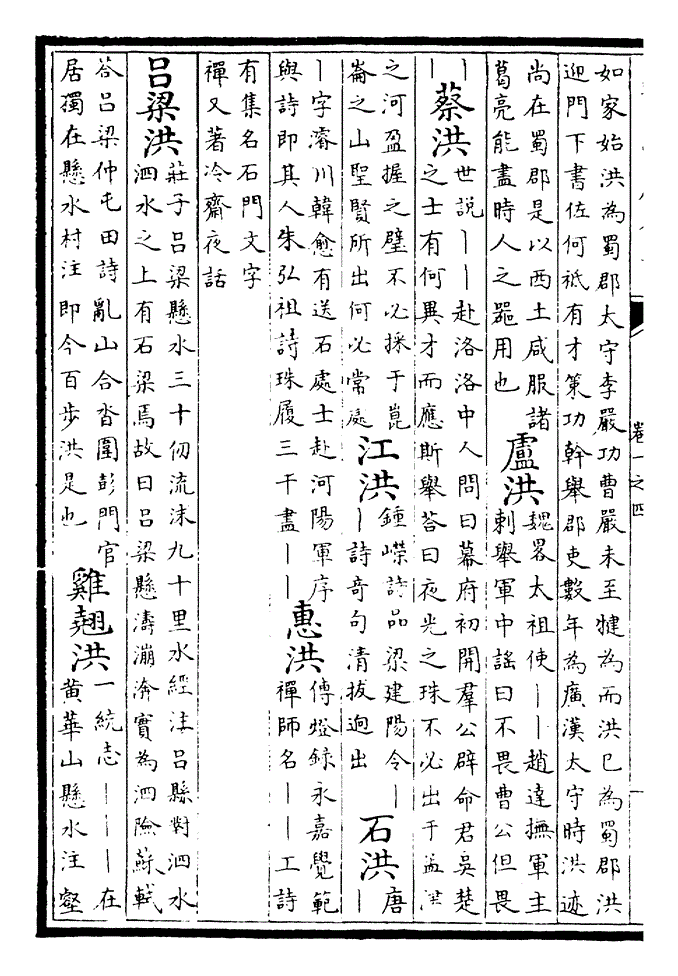 如家始洪為蜀郡太守李嚴功曹嚴未至犍為而洪已為蜀郡洪
迎門下書佐何祗有才策功幹舉郡吏數年為廣漢太守時洪迹
尚在蜀郡是以西土咸服諸
葛亮能盡時人之器用也
盧洪
魏畧太祖使丨丨趙達撫軍主
刺舉軍中謠曰不畏曹公但畏
丨丨
蔡洪
世說丨丨赴洛洛中人問曰幕府初開羣公辟命君吳楚
之士有何異才而應斯舉荅曰夜光之珠不必出于孟津
之河盈握之璧不必採于崑
崙之山聖賢所出何必常處
江洪
鍾嶸詩品梁建陽令丨
丨詩竒句清拔逈出
石洪
唐
丨
丨字濬川韓愈有送石處士赴河陽軍序
與詩即其人朱弘祖詩珠履三千盡丨丨
惠洪
傳燈録永嘉覺範
禪師名丨丨工詩
有集名石門文字
禪又著冷齋夜話
吕梁洪
莊子吕梁懸水三十仞流沫九十里水經注吕縣對泗水
泗水之上有石梁焉故曰吕梁懸濤漰渀實為泗險蘇軾
荅吕梁仲屯田詩亂山合沓圍彭門官
居獨在懸水村注即今百步洪是也
雞翹洪
一統志丨丨丨在
黄華山懸水注壑
卷一之四